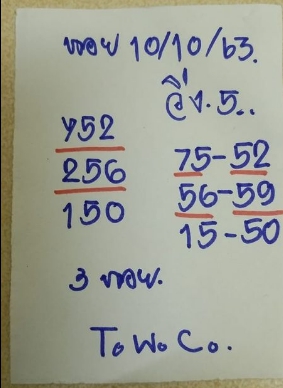 หวย 10/10/63.
วิ่ง.5..
752
256
150
75-52
56-59
15-50
3 หวย.
To Wo Co.